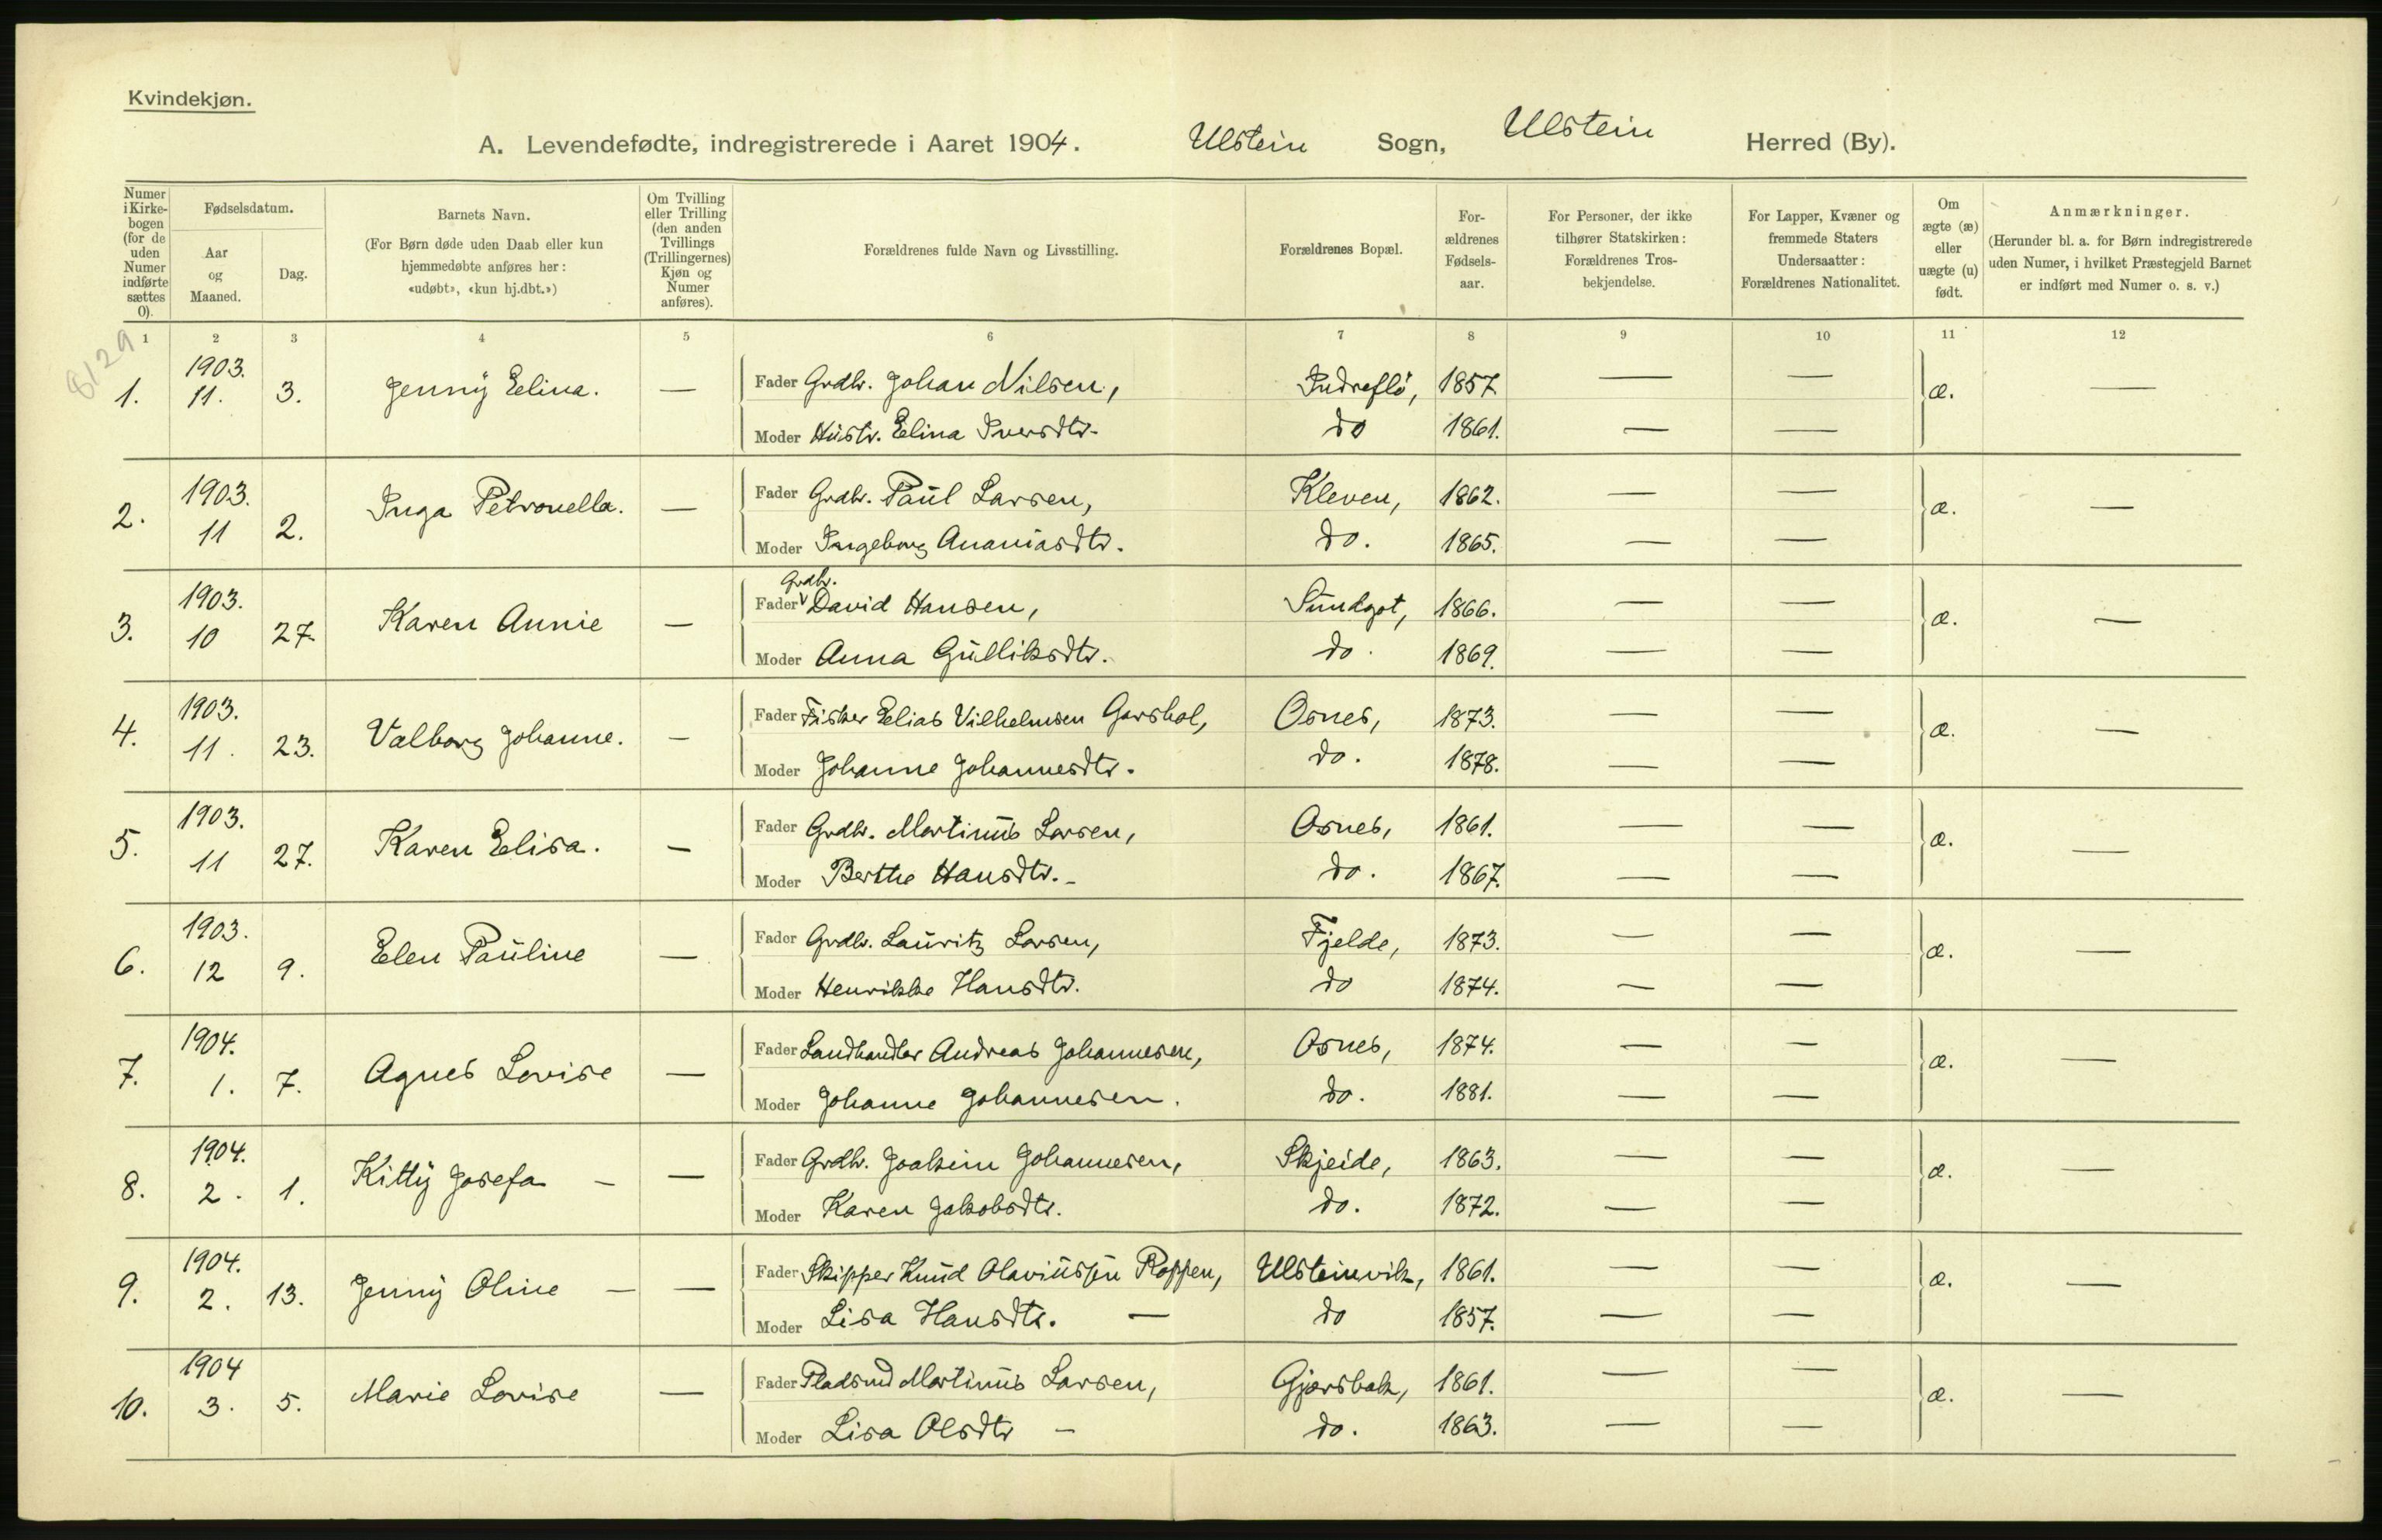 Kvindekjøn.
A. Levendefødte, indregistrerede i Aaret 1904. Ulstein Sogn, Ulstein Herred (By).
Numer i Kirkebogen (for de uden Numer indførte sættes 0).
Fødselsdatum.
Aar og Maaned.
Dag.
Barnets Navn.
(For Børn døde uden Daab eller kun hjemmedøbte anføres her: «udøbt», «kun hj.dbt.»)
Om Tvilling eller Trilling (den anden Tvillings (Trillingernes) Kjøn og Numer anføres).
Forældrenes fulde Navn og Livsstilling.
Forældrenes Bopæl.
Forældrenes Fødselsaar.
For Personer, der ikke tilhører Statskirken: Forældrenes Trosbekjendelse.
For Lapper, Kvæner og fremmede Staters Undersaatter: Forældrenes Nationalitet.
Om ægte (æ) eller uægte (u) født.
Anmærkninger.
(Herunder bl. a. for Børn indregistrerede uden Numer, i hvilket Præstegjeld Barnet er indført med Numer o. s. v.)
1 2 3 4 5 6 7 8 9 10 11 12
8129
1. 1903. 11. 3. Jenny Elina. — Fader Grdbr. Johan Nilsen, Indreflø, 1857 — — æ. —
Moder Hustr. Elina Iversdtr. do 1861. — —
2. 1903. 11 2. Inga Petronella. — Fader Grdbr. Paul Larsen, Kleven, 1862. — — æ. —
Moder Ingeborg Ananiasdtr. do. 1865. — —
3. 1903. 10 27. Karen Annie — Fader Grdbr. David Hansen, Sundgot, 1866. — — æ. —
Moder Anna Gulliksdtr. do. 1869. — —
4. 1903. 11. 23. Valborg Johanne. — Fader Fisker Elias Vilhelmsen Garshol, Osnes, 1873. — — æ. —
Moder Johanne Johannesdtr. do. 1878. — —
5. 1903. 11 27. Karen Elisa. — Fader Grdbr. Martinus Larsen, Osnes, 1861. — — æ. —
Moder Berthe Hansdtr. do. 1867. — —
6. 1903. 12 9. Elen Pauline — Fader Grdbr. Lauritz Larsen, Fjelde, 1873. — — æ. —
Moder Henrikke Hansdtr. do 1874. — —
7. 1904. 1. 7. Agnes Lovise — Fader Landhandler Andreas Johannesen, Osnes, 1874. — — æ. —
Moder Johanne Johannesen. do. 1881. — —
8. 1904. 2. 1. Kitty Josefa — — Fader Grdbr. Joakim Johannesen, Skjeide, 1863. — — æ. —
Moder Karen Jakobsdtr. do. 1872. — —
9. 1904. 2. 13. Jenny Oline — — Fader Skipper Knud Olaviussen Roppen, Ulsteinvik, 1861. — — æ. —
Moder Lisa Hansdtr. — do 1857. — —
10. 1904 3. 5. Marie Lovise — Fader Pladsmd Martinus Larsen, Gjørsbak, 1861. — — æ. —
Moder Lisa Olsdtr — do. 1863. — —